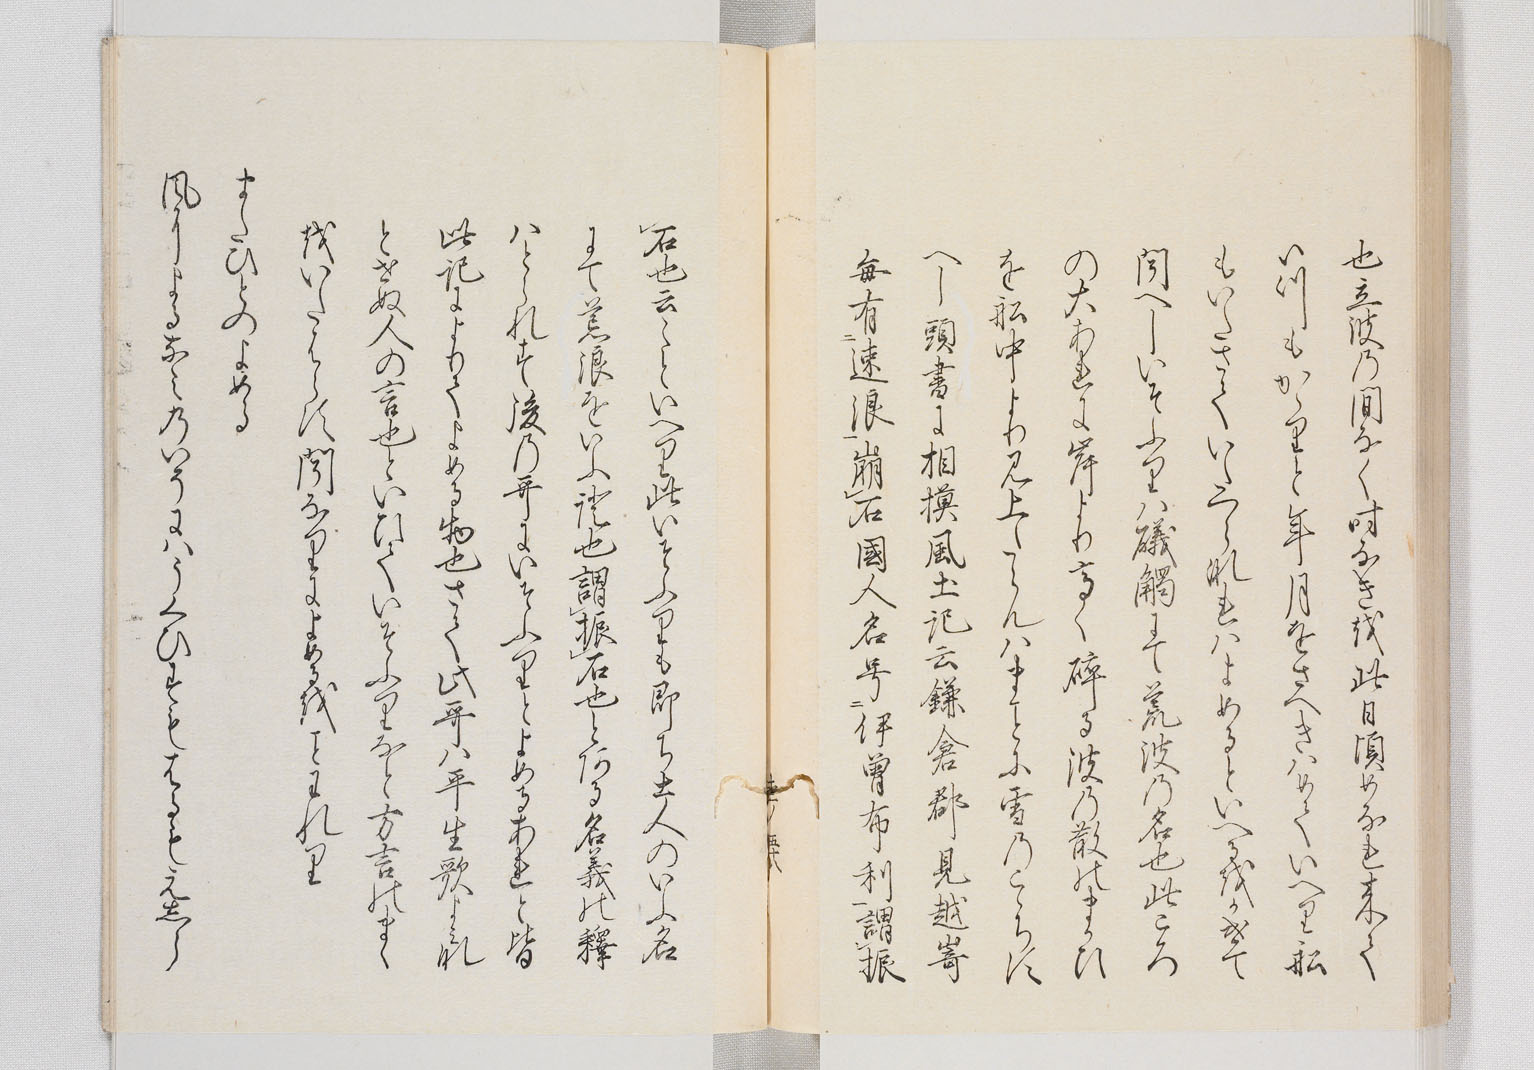 也立波乃間なく時なき越此日頃めなれ来て
い川もかゝりと年月をさへきはめていへり船
もいたさてくいたつらなれはよめるといへる越かけて
聞へしいそふりハ磯觸にて荒波乃名也此ころ
の大あれに岸より高く砕る波乃散のまかひ
を船中より見上たらんハまことに雪乃こゝちす
へし頭書に相摸風土記云鎌倉郡見越嵜
毎有ニ速浪一崩レ石國人名号ニ伊曽布利一謂レ振
レ石也云々といへり此いそふりも即ち土人のいふ名
にて荒浪をいふ證也謂レ振レ石也とある名義の釋
ハとられす後乃哥にいそふりとよめるあれと皆
此記によりてよめる物也さて此哥ハ平生歌よみな
とせぬ人の言也といひていそふりなと方言のまゝ
越いたはらす聞なりによめる越ことわれり
またひとのよめる
風によるなみのいそにはうくひすもはるもえしら